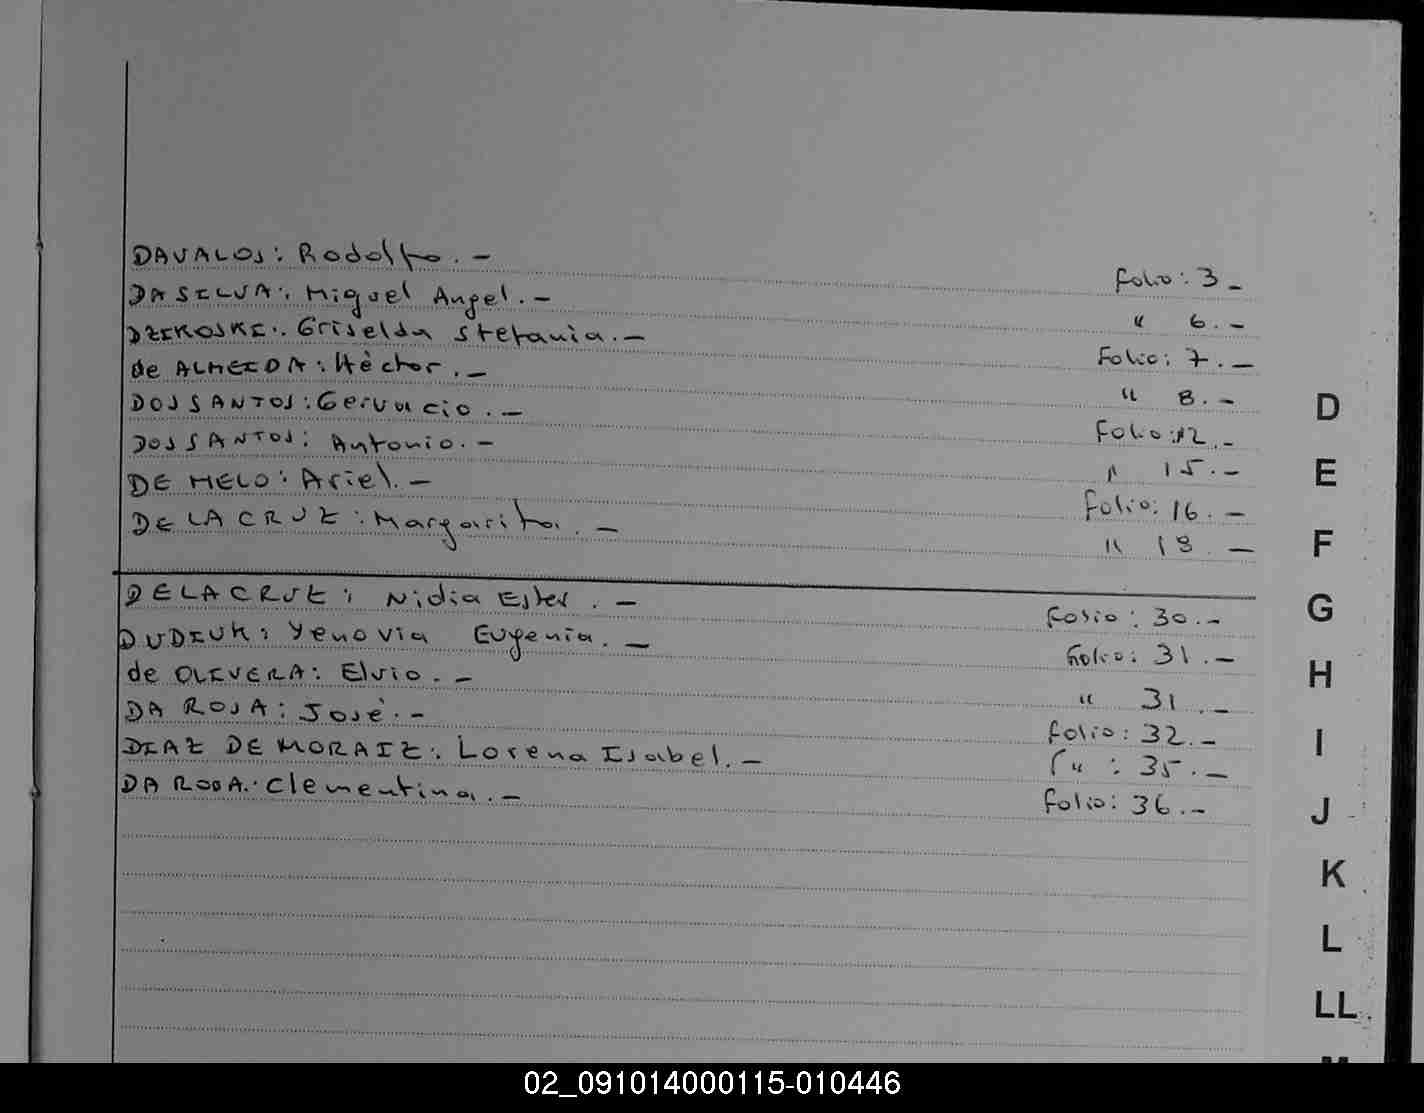 DAVALOS: Rodolfo.- Folio: 3-
DA SILVA: Miguel Angel.- " 6.-
DZIKOSKI: Griselda Stefania.- Folio: 7.-
de ALMEIDA: Héctor.- " 8.-
DOS SANTOS: Gervacio.- Folio: 12.-
DOS SANTOS: Antonio.- " 15.-
DE MELO: Ariel.- Folio: 16.-
DE LA CRUZ: Margarita.- " 18.-
DE LA CRUZ: Nidia Ester.- Folio: 30.-
DUDIUK: Yenovia Eugenia.- Folio: 31.-
de OLIVERA: Elvio.- " 31.-
DA ROSA: José.- Folio: 32.-
DIAZ DE MORAIZ: Lorena Isabel.- " : 35.-
DA ROSA: Clementina.- Folio: 36.-
D
E
F
G
H
I
J
K
L
LL
M
02_091014000115-010446